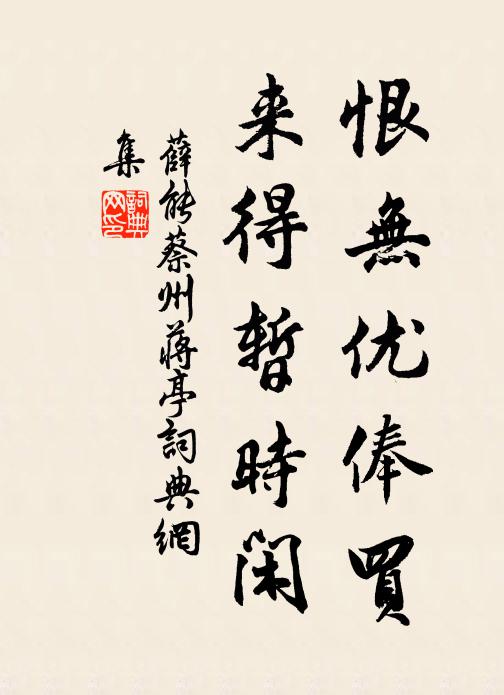 恨無优俸買
来得暫時閑
薛能蔡州蔣亭詞典網
集
詞典網印